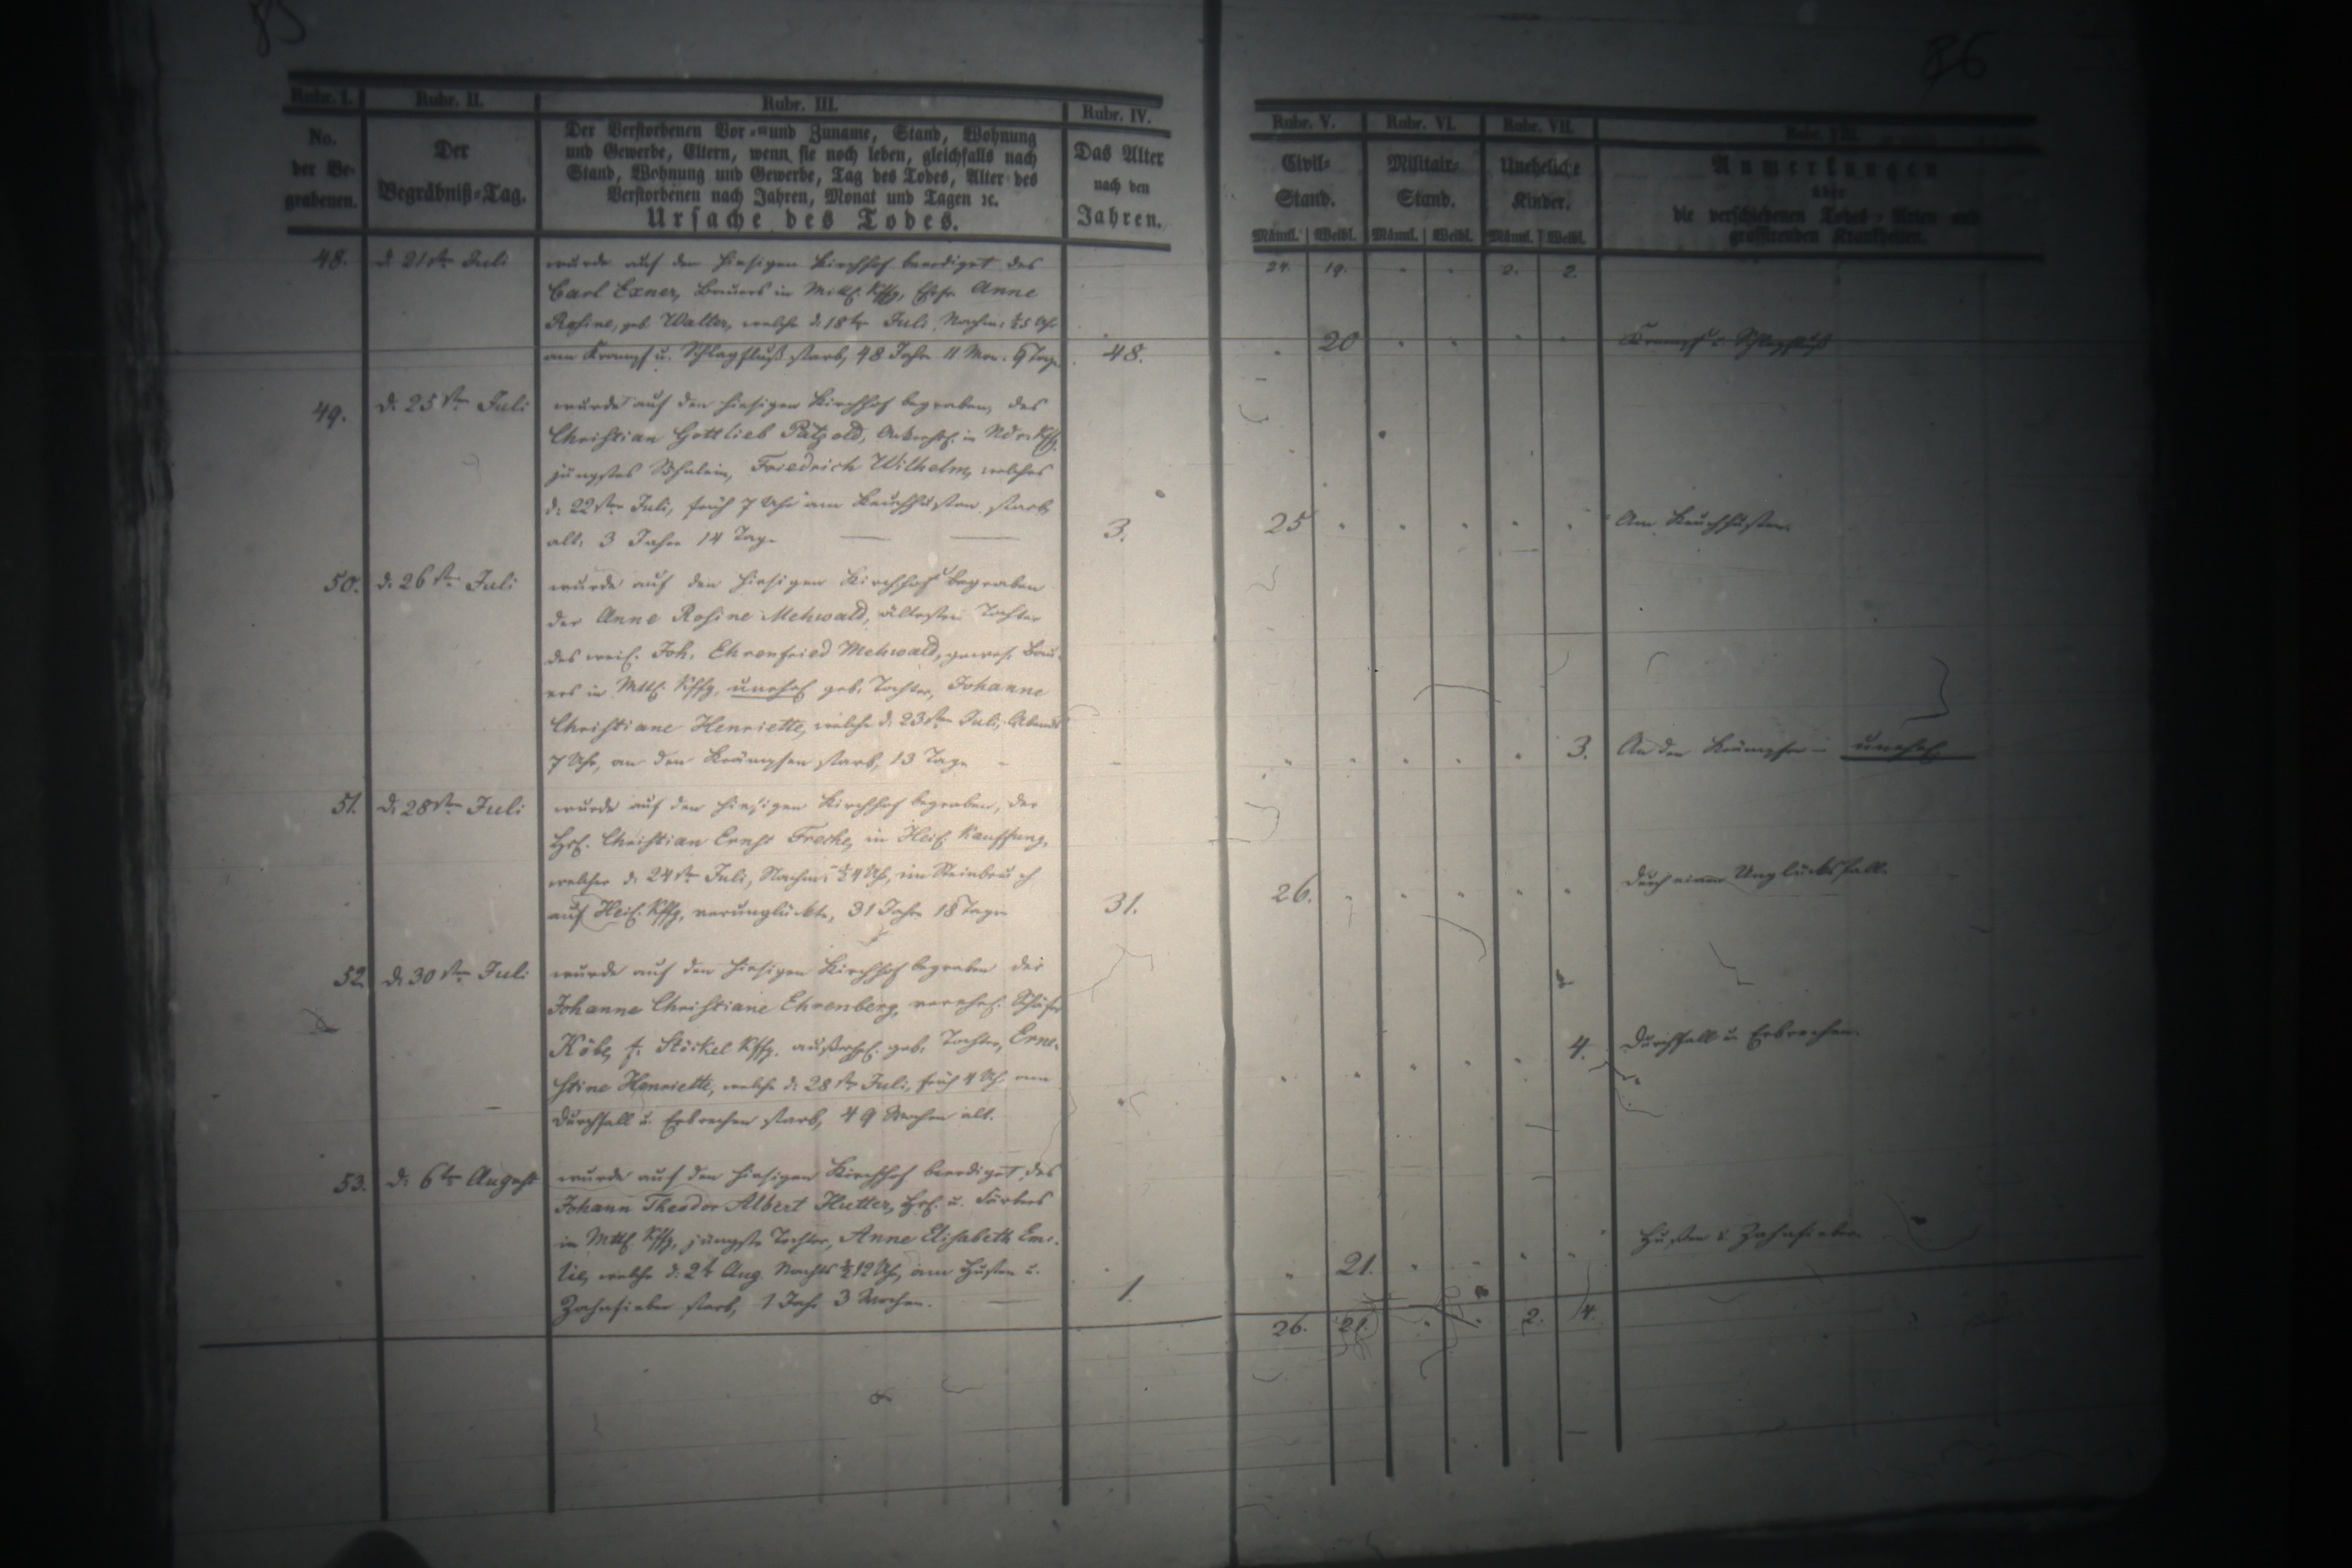 85
86
Rubr. I.
No.
der Be-
grabenen.
Rubr. II.
Der
Begräbniß-Tag.
Rubr. III.
Der Verstorbenen Vor- und Zuname, Stand, Wohnung
und Gewerbe, Eltern, wenn sie noch leben, gleichfalls nach
Stand, Wohnung und Gewerbe, Tag des Todes, Alter des
Verstorbenen nach Jahren, Monat und Tagen ꝛc.
Ursache des Todes.
Rubr. IV.
Das Alter
nach den
Jahren.
Rubr. V.
Civil-
Stand.
Männl. Weibl.
Rubr. VI.
Militair-
Stand.
Männl. Weibl.
Rubr. VII.
Uneheliche
Kinder.
Männl. Weibl.
Rubr. VIII.
Anmerkungen
über
die verschiedenen Todes-Arten und
grassirenden Krankheiten.
24. 19. " " 2. 2.
48. d. 21sten Juli wurde auf den hiesigen Kirchhof beerdiget des
Carl Exner, Bauers in Mittl. Kffg, Ehefr. Anne
Rosine, geb. Walter, welche d. 18ten Juli, Nachm. 5 Uhr
am Krampf u. Schlagfluß starb, 48 Jahre 11 Mon. 9 Tage 48. 20 Krampf u. Schlagfluß
49. d. 25sten Juli wurde auf den hiesigen Kirchhof begraben, des
Christian Gottlieb Pätzold, in Ndr. Kffg.
jüngstes Söhnlein, Friedrich Wilhelm, welches
d. 22sten Juli, früh 7 Uhr am Keuchhusten starb,
alt, 3 Jahre 14 Tage 3. 25 Am Keuchhusten.
50. d. 26sten Juli wurde auf den hiesigen Kirchhof begraben
der Anne Rosine Mehwald, ältesten Tochter
des weil. Joh. Ehrenfried Mehwald, gewes. Bau-
ers in Mttl. Kffg, unehel. geb. Tochter, Johanne
Christiane Henriette, welche d. 23sten Juli, Abends
7 Uhr, an den Krämpfen starb, 13 Tage 3. An den Krämpfen - unehel.
51. d. 28sten Juli wurde auf den hiesigen Kirchhof begraben, der
Hsl. Christian Ernst Freche, in Heil. Kauffung,
welcher d. 24sten Juli, Nachm. ½4 Uhr, im Steinbruch
auf Heil. Kffg, verunglückte, 31 Jahre 18 Tage 31. 26. Durch einen Unglücksfall.
52. d. 30sten Juli wurde auf den hiesigen Kirchhof begraben der
Johanne Christiane Ehrenberg, verehel. Schäfer
Köbe, z. Stöckel Kffg. außerehel. geb. Tochter, Erne-
stine Henriette, welche d. 28sten Juli, früh 4 Uhr am
Durchfall u. Erbrechen starb, 49 Wochen alt. 4. Durchfall u. Erbrechen.
53. d. 6ten August wurde auf den hiesigen Kirchhof beerdiget, des
Johann Theodor Albert Hutter, Hsl. u. Färbers
in Mttl. Kffg, jüngste Tochter, Anne Elisabeth Emi-
lie, welche d. 2t Aug. Nachts ½12 Uhr, am Husten u.
Zahnfieber starb, 1 Jahr 3 Wochen. 1. 21. Husten u. Zahnfieber.
26. 21. " " 2. 4.